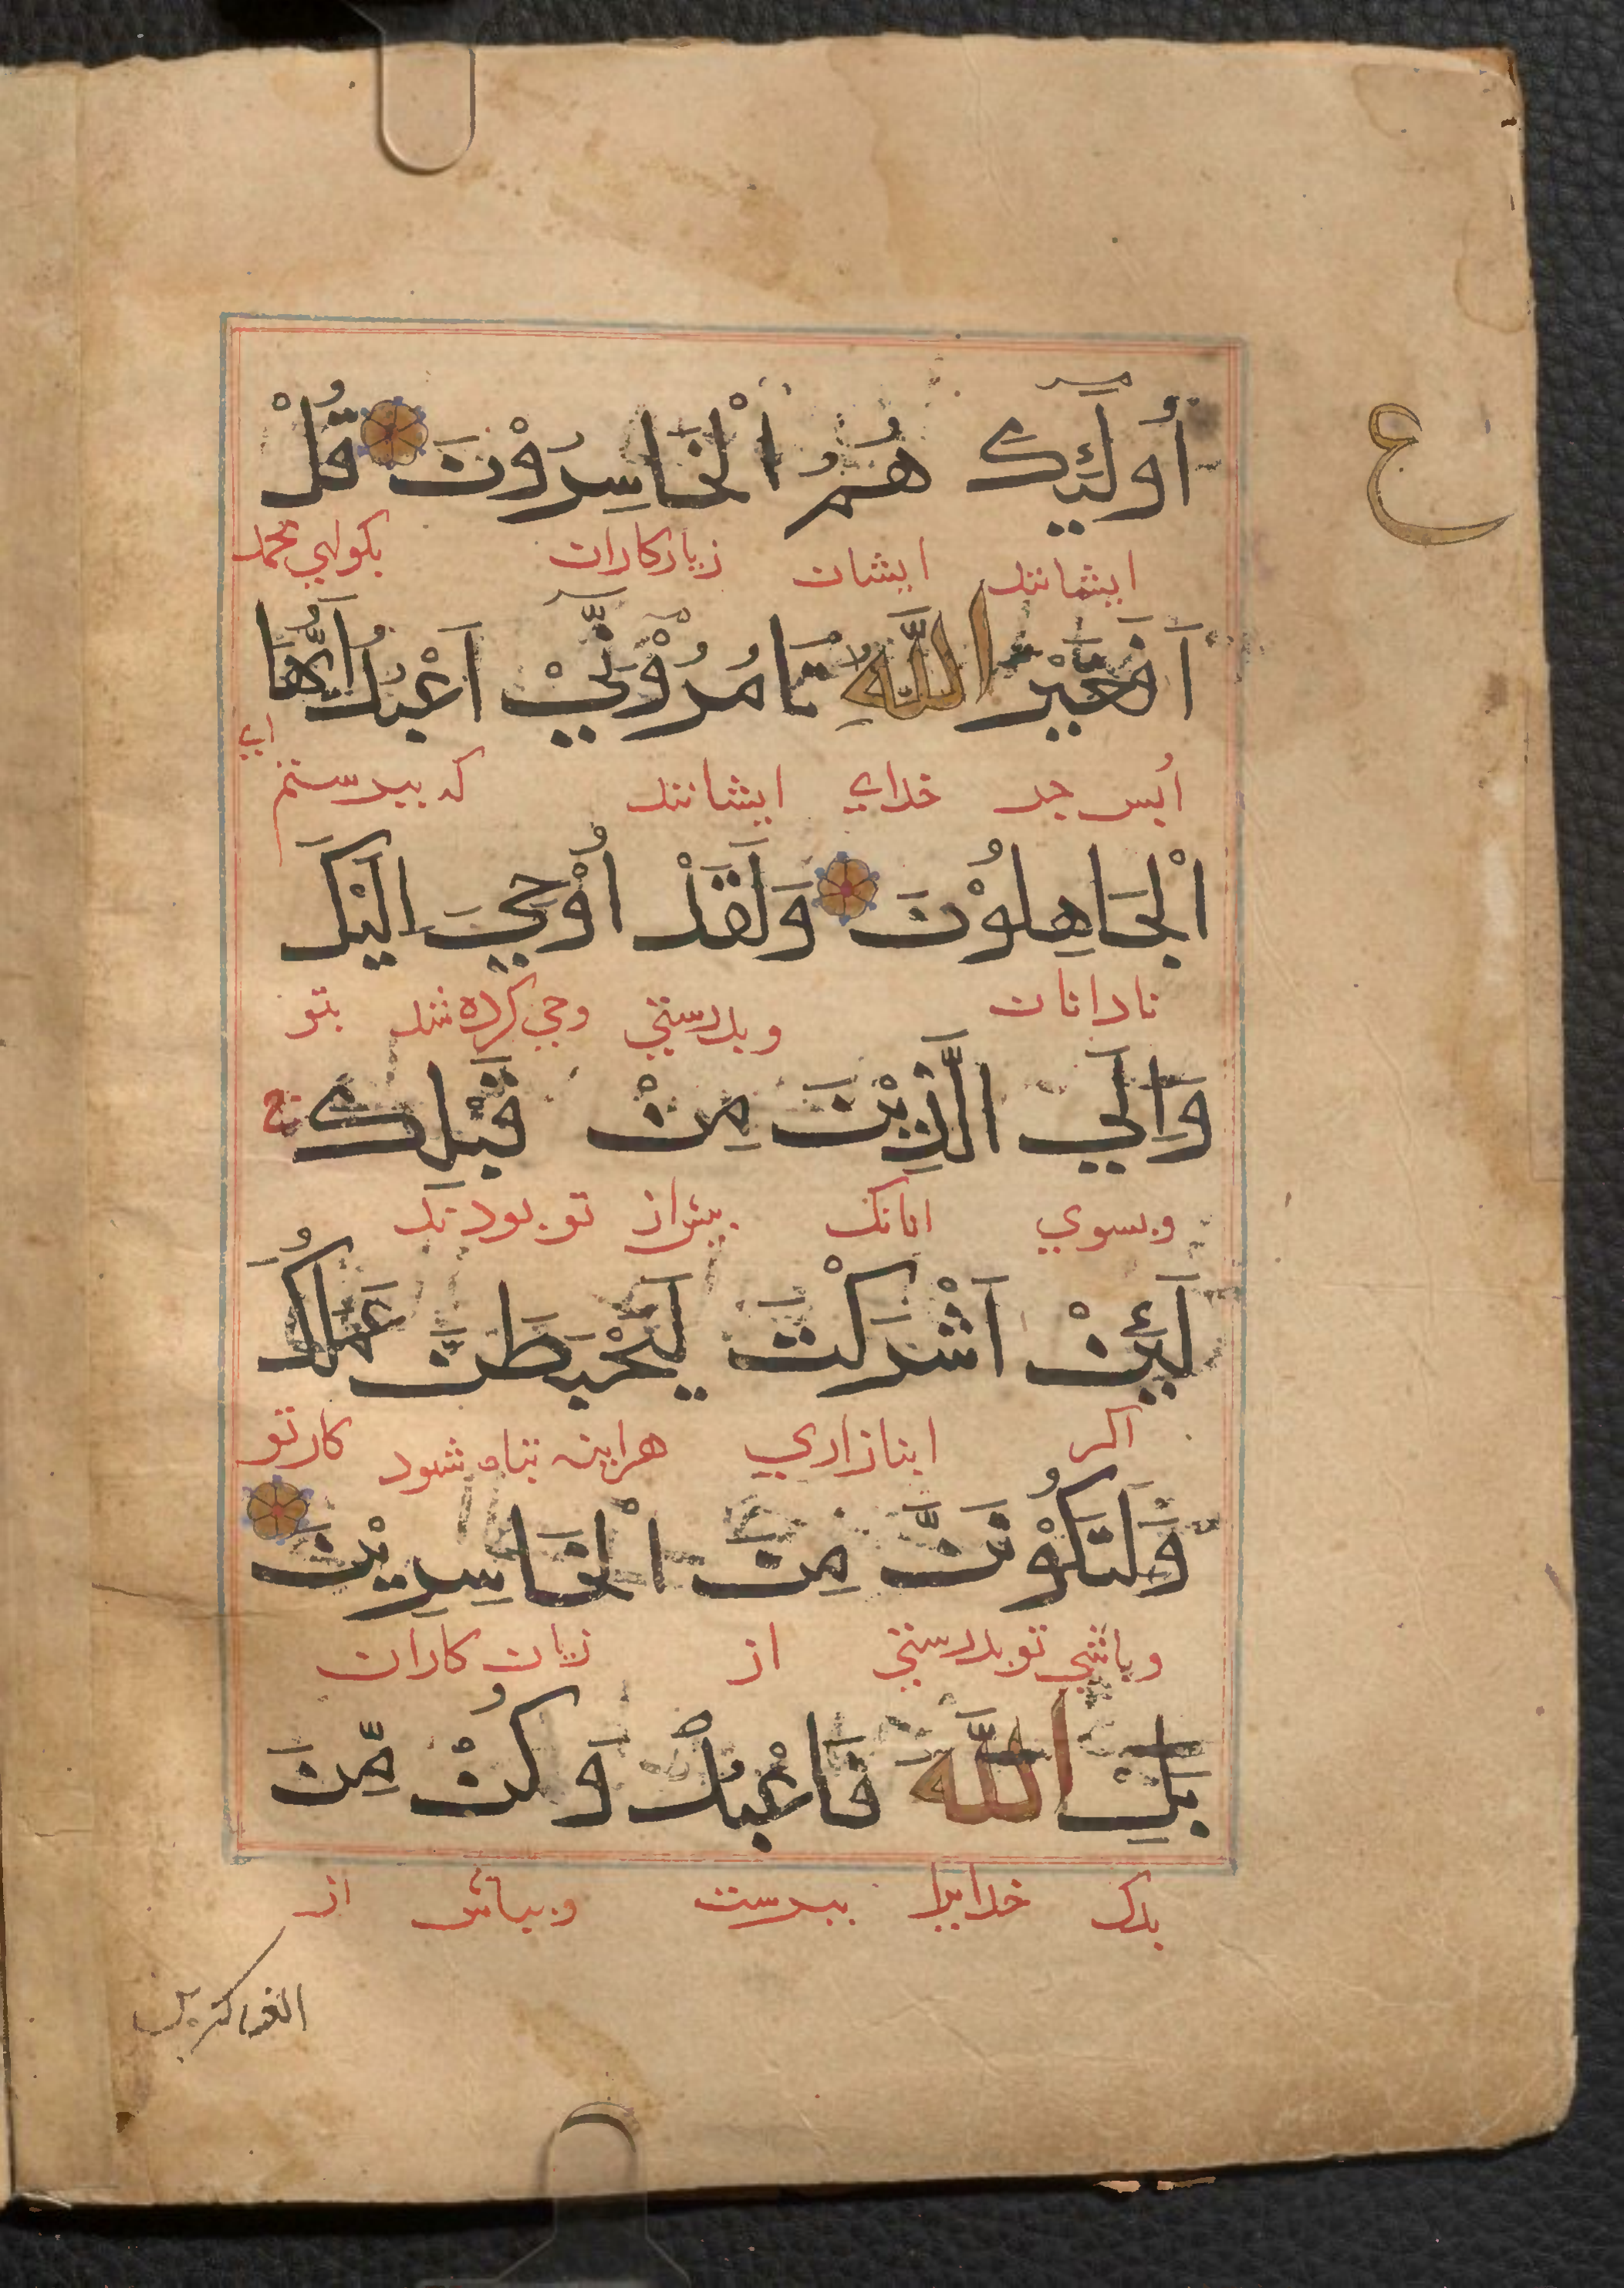 ع
أُولَٰئِكَ هُمُ الْخَاسِرُوْنَ قُلْ
ايشانند ايشان زيان‌كاران بكو اي محمد
اَفَغَيْرَ اللّٰهِ تَامُرُوْنِّيْ اَعْبُدُ اَيُّهَا
ايس جد خداي ايشانند كه بپرستم اي
الْجَاهِلُوْنَ وَلَقَدْ اُوْحِيَ اِلَيْكَ
نادانان وبدرستي وحي كرده شد بتو
وَاِلَي الَّذِيْنَ مِنْ قَبْلِكَ ج
وبسوي انانك پيش از تو بودند
لَئِنْ اَشْرَكْتَ لَيَحْبَطَنَّ عَمَلُكَ
اكر انبازاري هراينه تباه شود كار تو
وَلَتَكُوْنَنَّ مِنَ الْخَاسِرِيْنَ
وباشي تو بدرستي از زيان كاران
بَلِ اللّٰهَ فَاعْبُدْ وَكُنْ مِّنَ
بلك خدايرا بپرست وبباش از